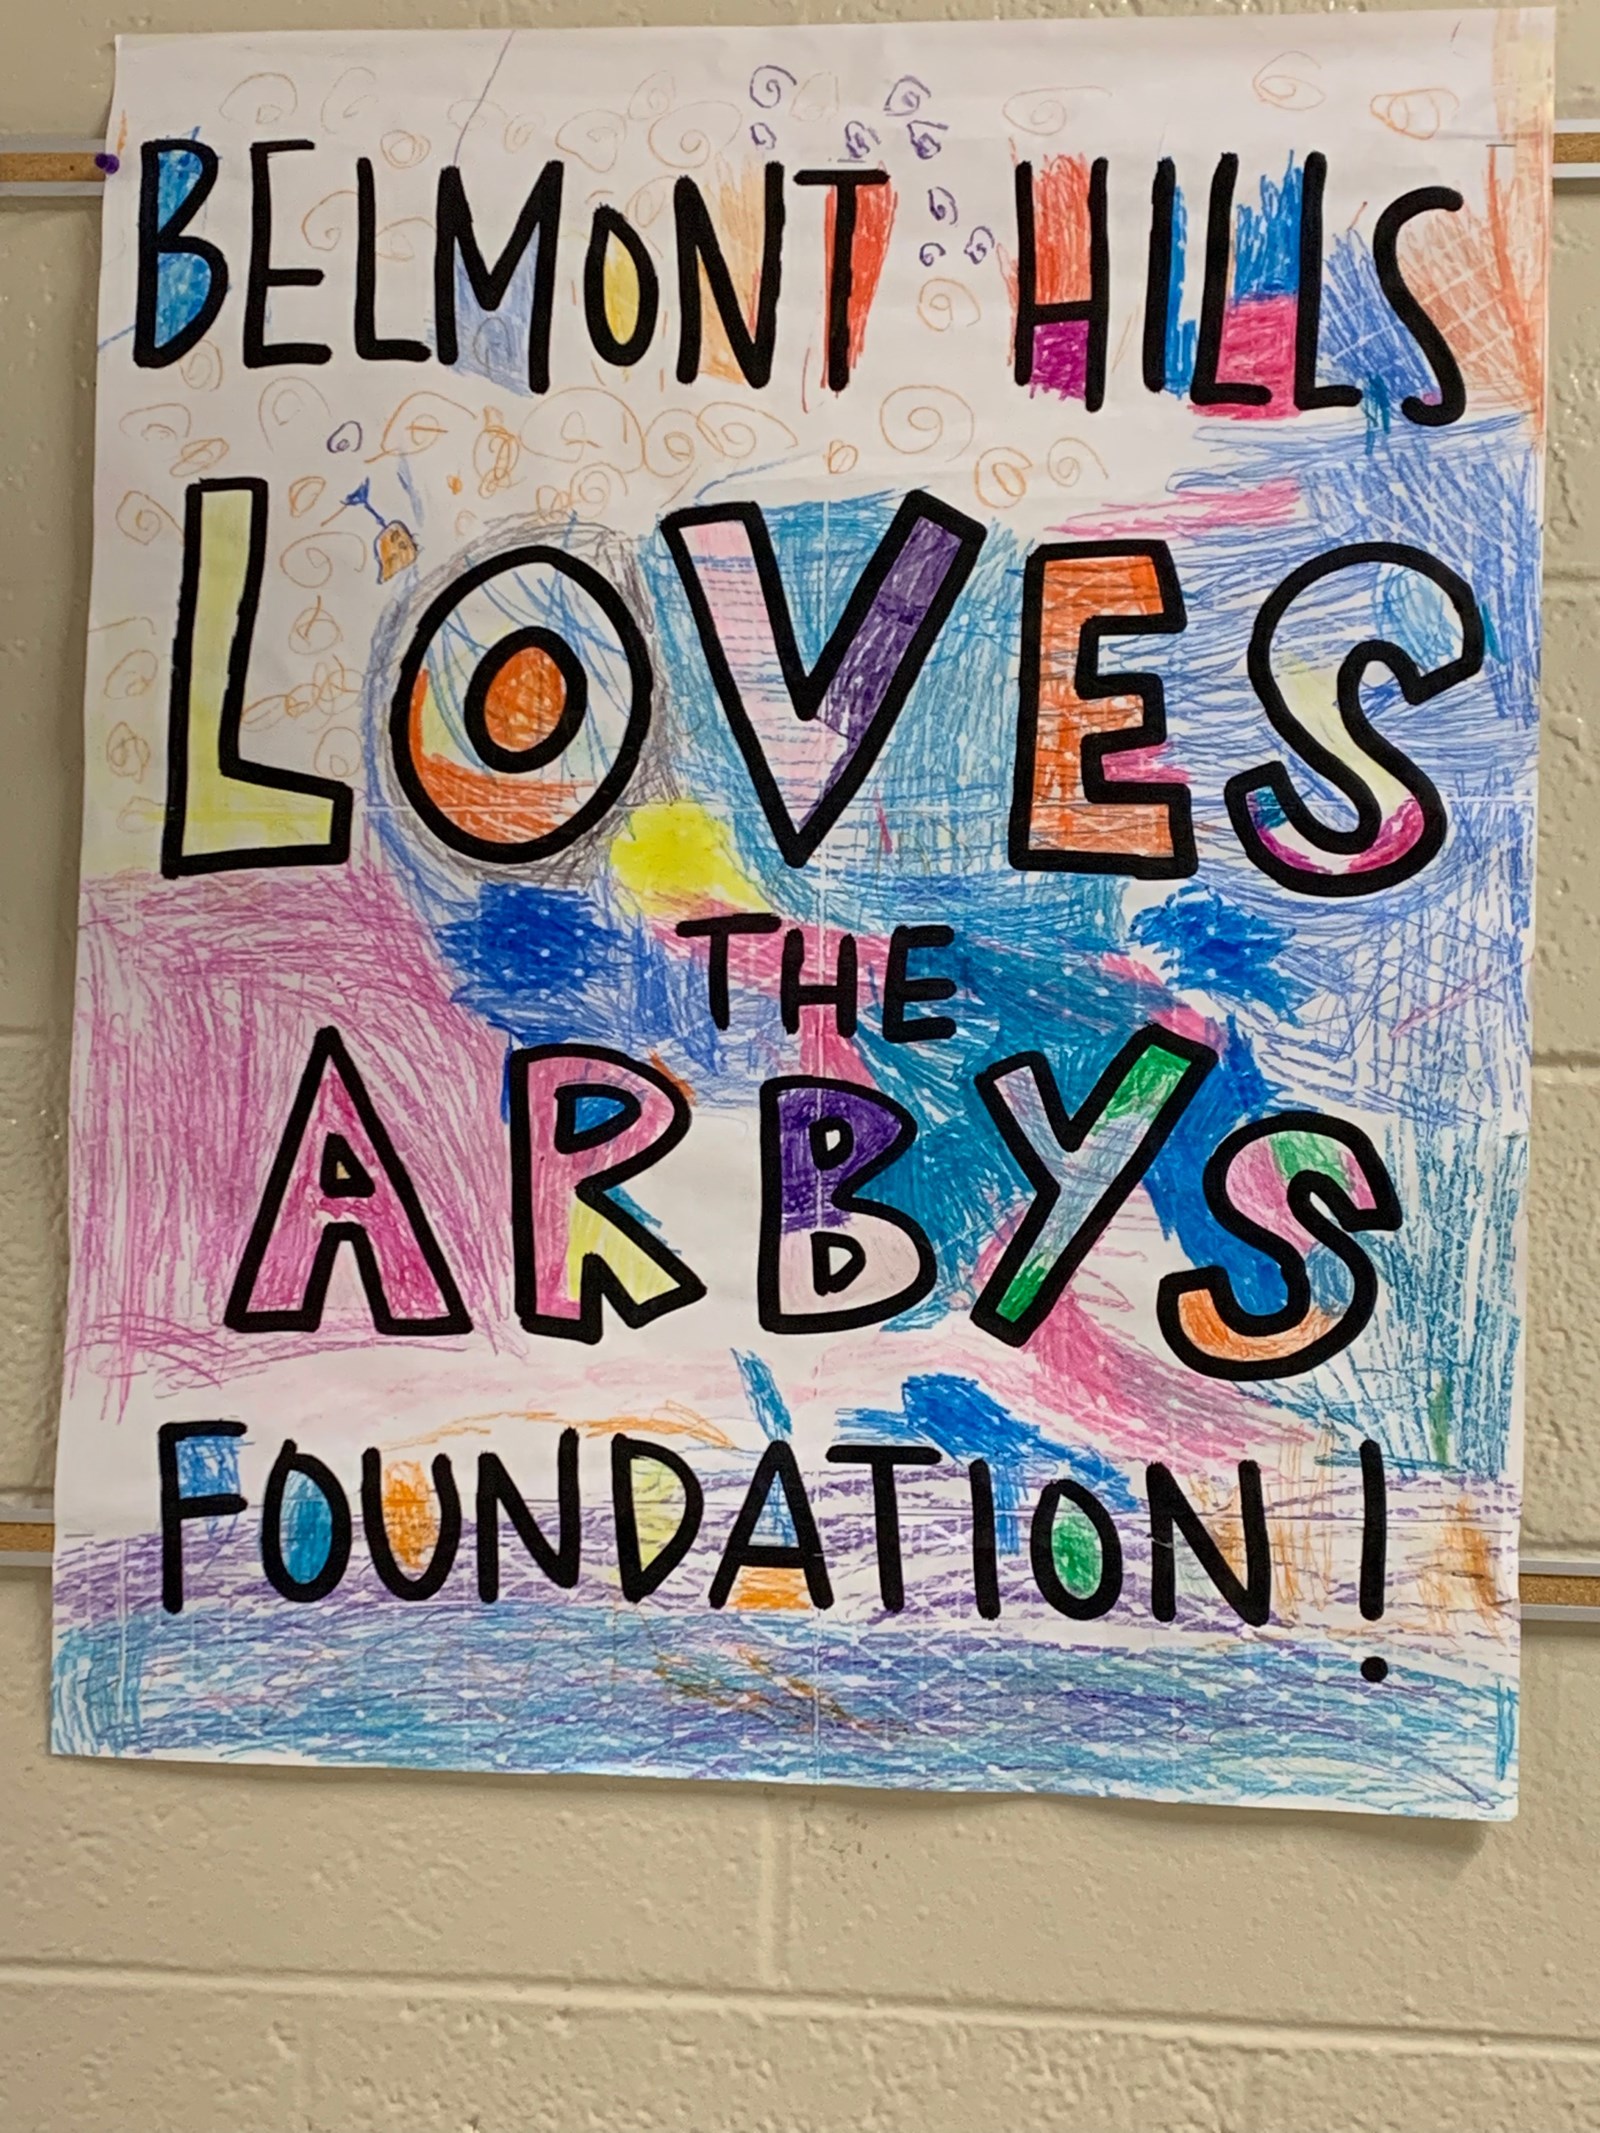 BELMONT HILLS
LOVES
THE
ARBYS
FOUNDATION!